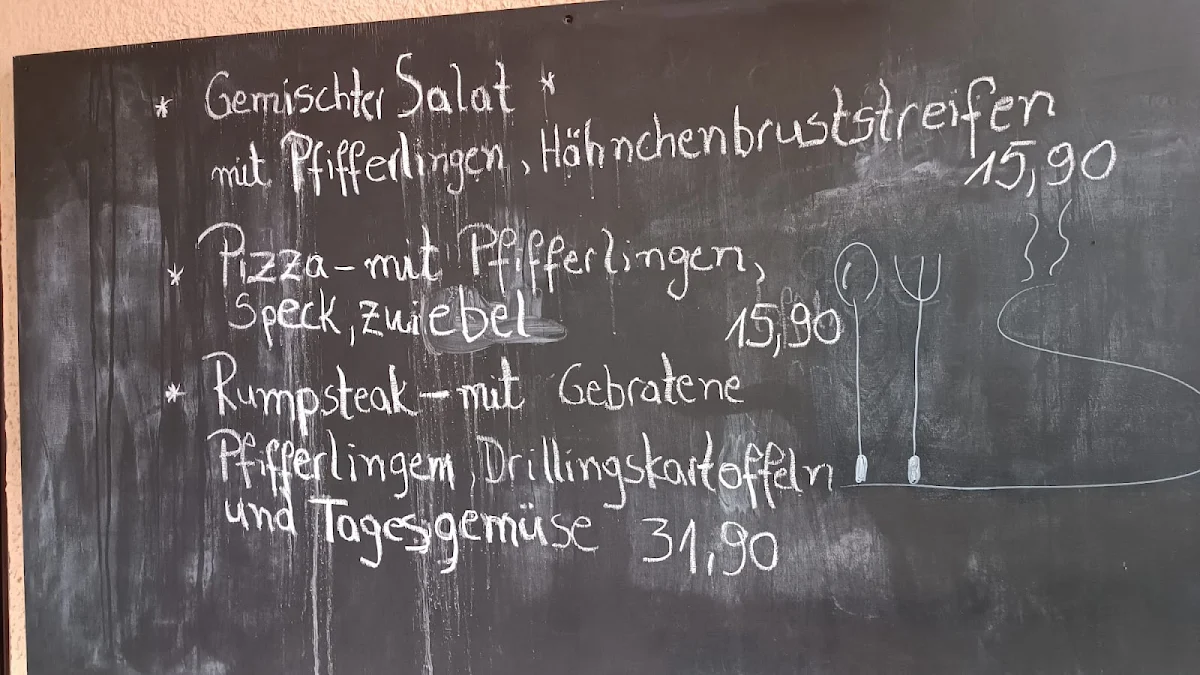 * Gemischter Salat *
mit Pfifferlingen, Hähnchenbruststreifen
15,90
* Pizza - mit Pfifferlingen,
Speck, Zwiebel 15,90
* Rumpsteak - mit Gebratene
Pfifferlingem, Drillingskartoffeln
und Tagesgemüse 31,90